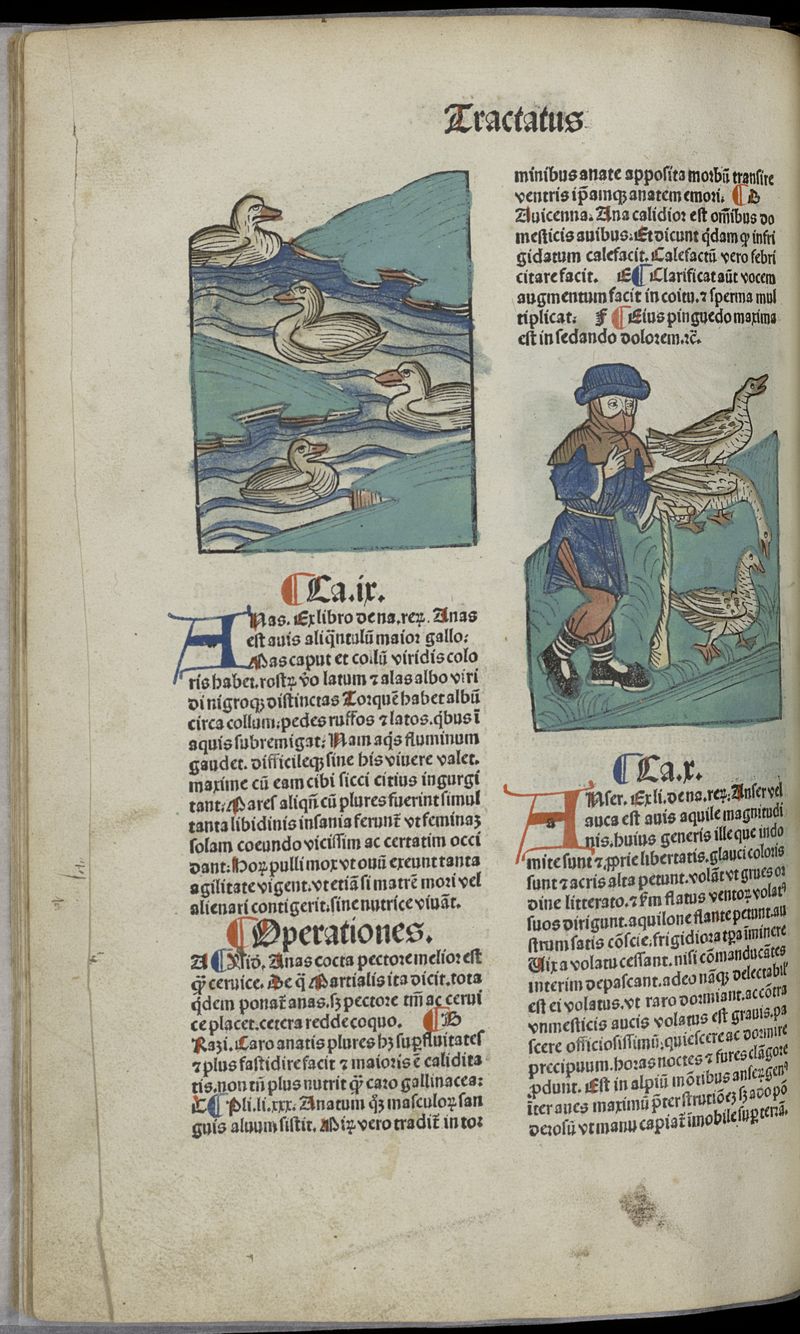 Tractatus
¶ Ca.ix.
ANas. Ex libro de na.reꝝ. Anas
est auis aliq̄ntulū maior gallo:
Mas caput et collū viridis colo
ris habet. rostꝝ v̄o latum ⁊ alas albo viri
di nigroqꝫ distinctas Torquē habet albū
circa collum: pedes ruffos ⁊ latos. q̇bus ī
aquis subremigat: Nam aq̇s fluminum
gaudet. difficileqꝫ sine his viuere valet.
maxime cū eam cibi sicci citius ingurgi
tant: Mares aliqn̄ cū plures fuerint simul
tanta libidinis insania ferunt̄ vt feminaꝫ
solam coeundo vicissim ac certatim occi
dant: Hoꝝ pulli mox vt ouū exeunt tanta
agilitate vigent. vt etiā si matrē mori vel
alienari contigerit. sine nutrice viuāt.
¶ Operationes.
A ¶ Anas cocta pectore melior est
q̄ ceruice. De q̄ Martialis ita dicit. tota
q̇dem ponat̄ anas. sꝫ pectore tm̄ ac cerui
ce placet. cetera redde coquo. ¶ B
Razi. Caro anatis plures hꝫ suꝑfluitates
⁊ plus fastidire facit ⁊ maioris ē calidita
tis. non tn̄ plus nutrit q̄ caro gallinacea:
C ¶ Pli.li.xxx. Anatum qꝫ masculoꝝ san
guis aluum sistit. Miꝝ vero tradit̄ in tor
minibus anate apposita morbū transire
ventris ip̄amqꝫ anatem emori. ¶ D
Auicenna. Ana calidior est om̄ibus do
mesticis auibus. Et dicunt q̇dam ꝙ infri
gidatum calefacit. Calefactū vero febri
citare facit. E ¶ Clarificat aūt vocem
augmentum facit in coitu. ⁊ sperma mul
tiplicat: F ¶ Eius pinguedo maxima
est in sedando dolorem. ⁊c̄.
¶ Ca.x.
ANser. Ex li. de na.reꝝ. Anser vel
auca est auis aquile magnitudi
nis. huius generis ille que indo
mite sunt ⁊ ꝓprie libertatis. glauci coloris
sunt ⁊ acris alta petunt. volāt vt grues or
dine litterato. ⁊ ẜm flatus ventoꝝ volatꝰ
suos dirigunt. aquilone flante petunt au
strum satis cōscie. frigidiora tꝑa īminere
Vix a volatu cessant. nisi cōmanducātes
interim depascant. adeo nāqꝫ delectabil'
est ei volatus. vt raro dormiant. accōtra
vnmesticis aucis volatus est grauis. pa
scere officiosissimū: quiescere ac dormire
precipuum. horas noctes ⁊ fures clāgore
ꝓdunt. Est in alpiū mōtibus anseꝝ genꝰ
īter aues maximū p̄ter strutiōeꝫ sꝫ adeo pō
derosū vt manu capiat̄ īmobile suꝑ terrā.